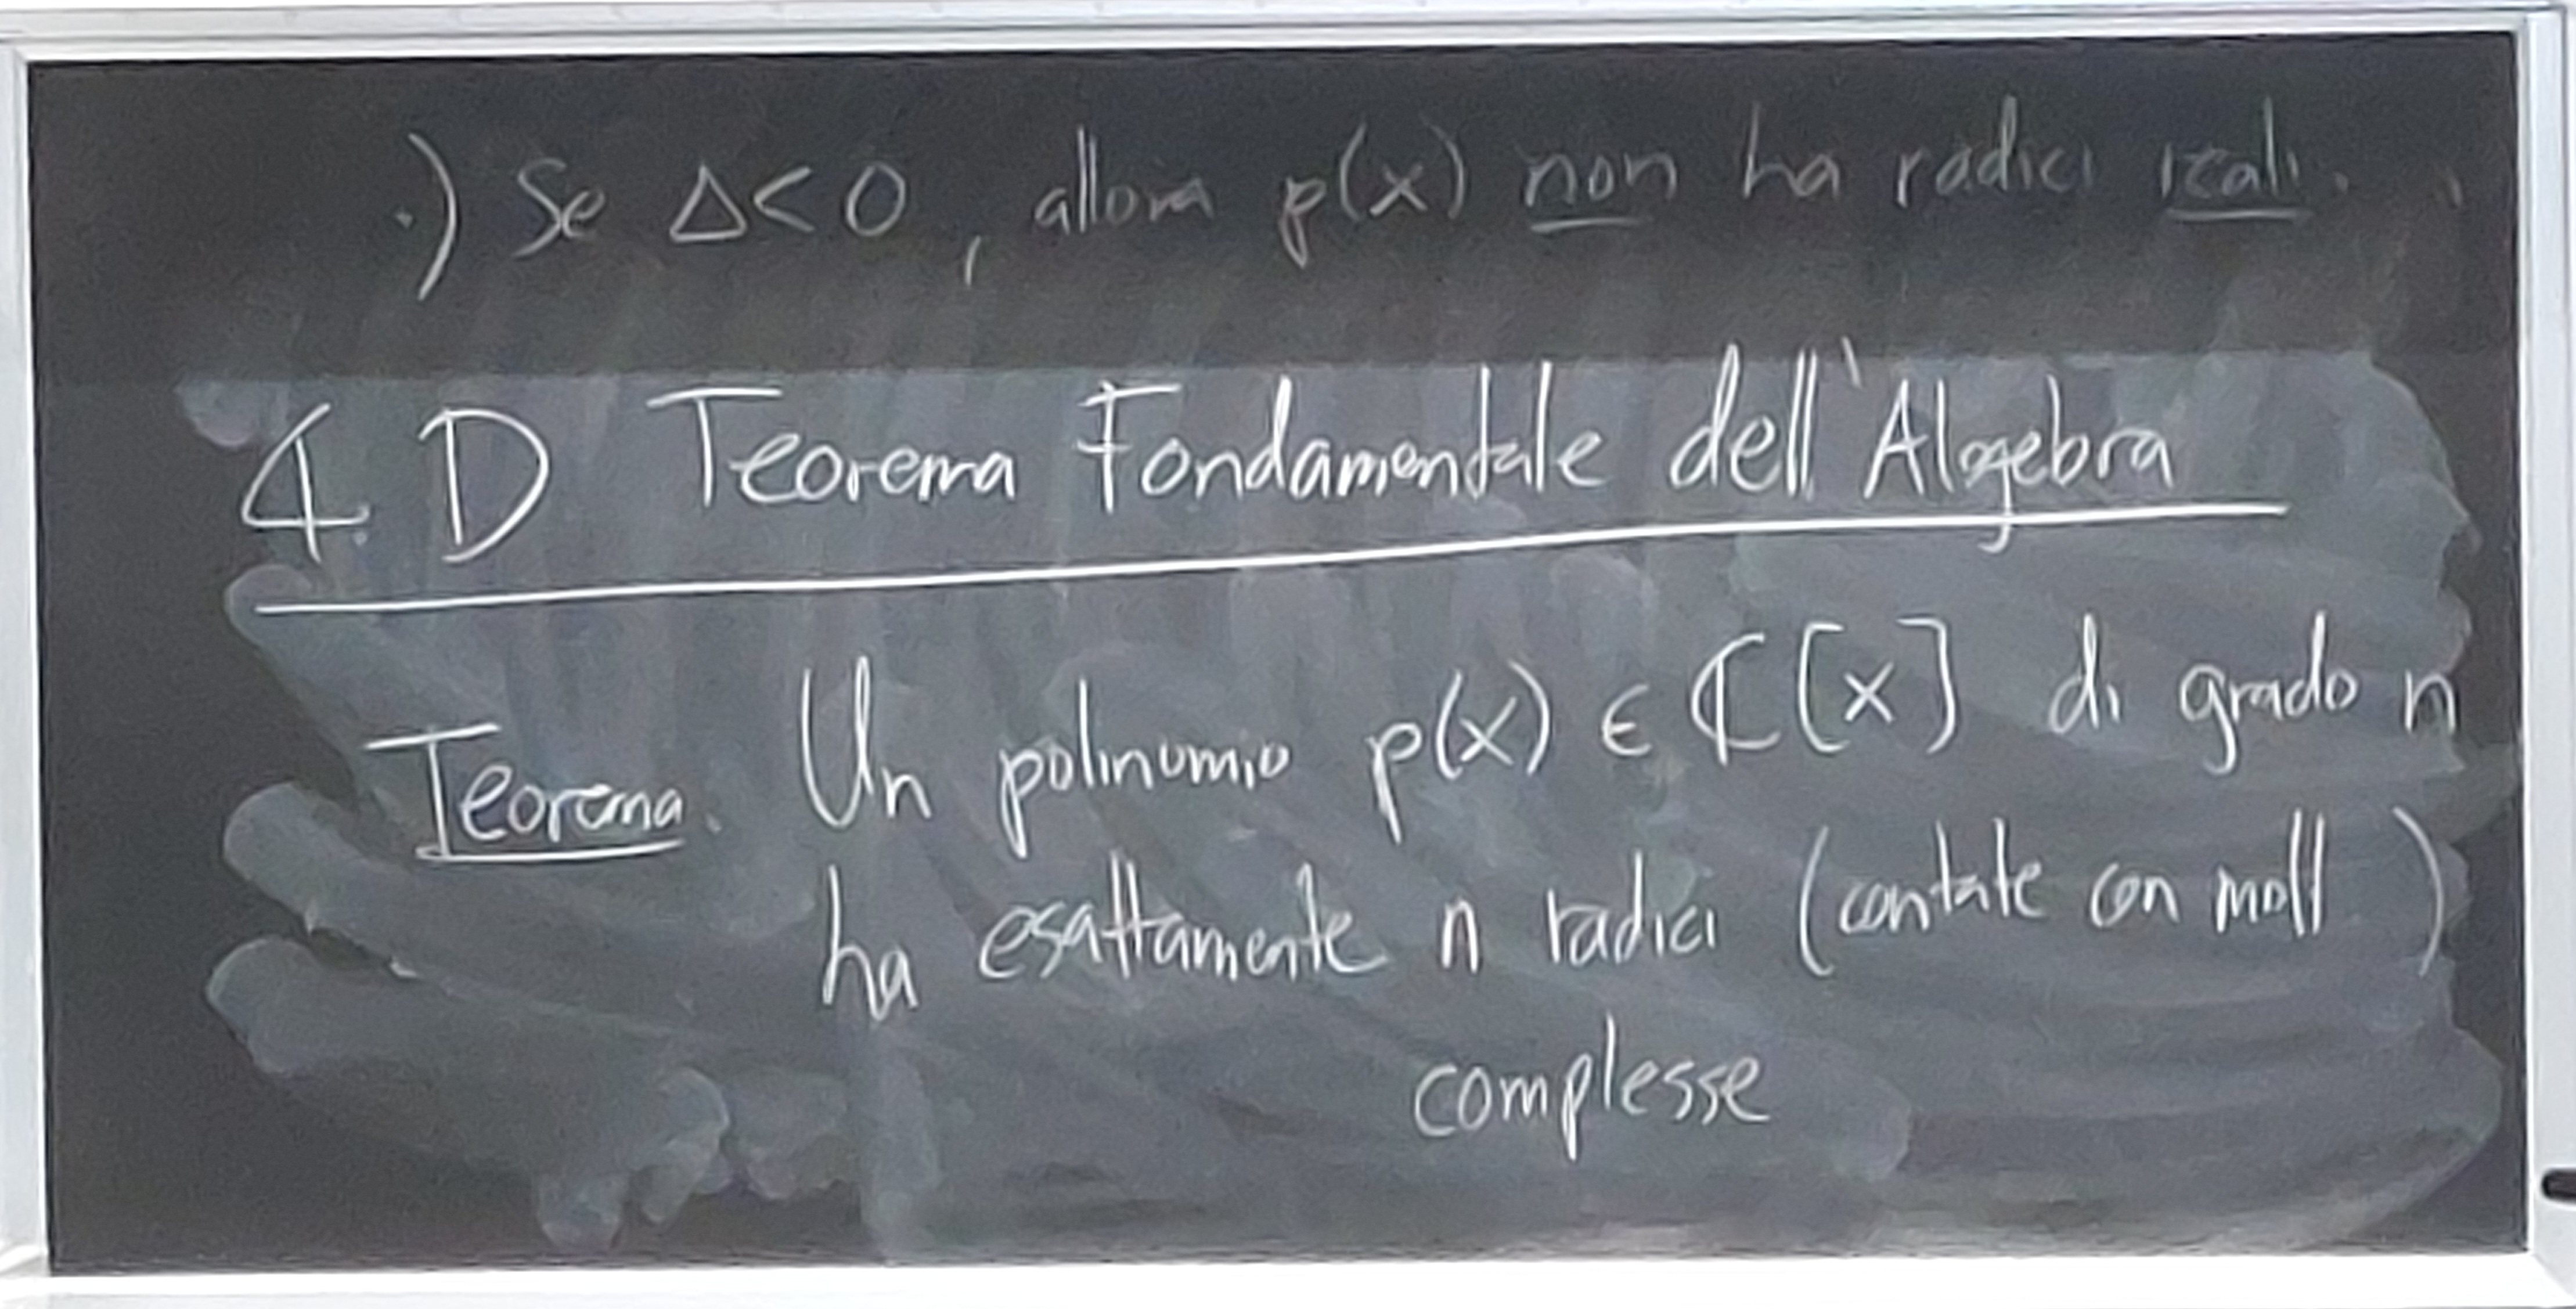 ·) Se Δ<0, allora p(x) non ha radici reali.
4. D Teorema Fondamentale dell'Algebra
Teorema. Un polinomio p(x) ∈ ℂ[x] di grado n
ha esattamente n radici (contate con molt )
complesse